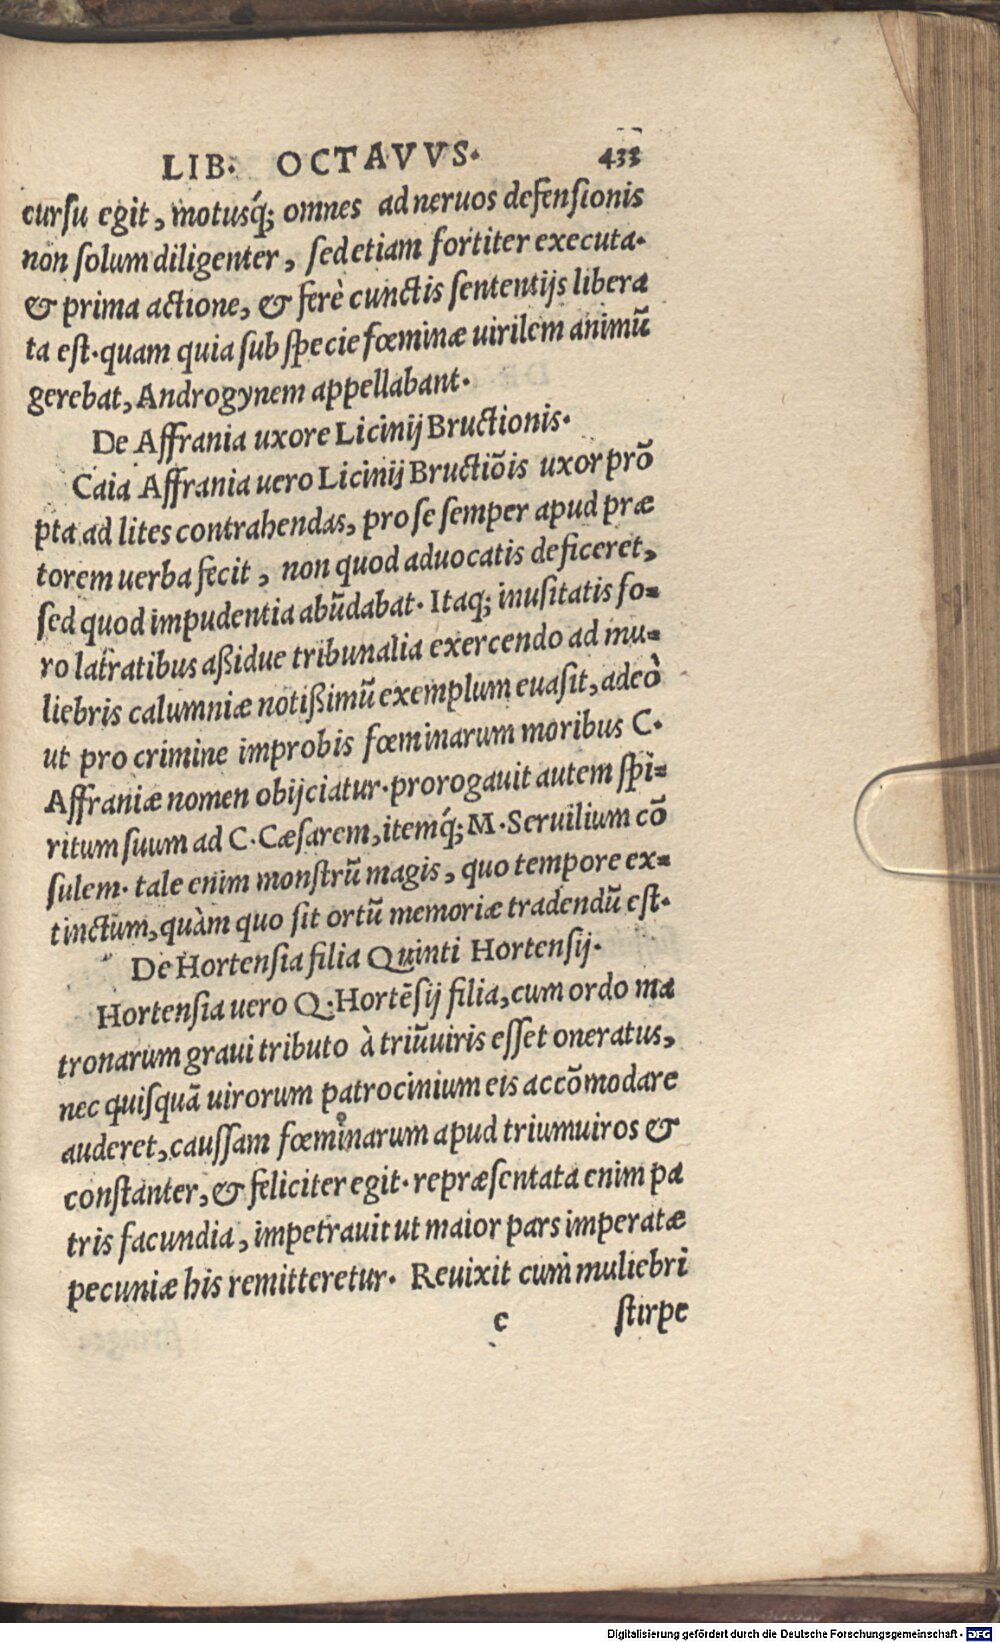 LIB. OCTAVVS. 433
curſu egit, motusq́; omnes ad neruos defenſionis
non ſolum diligenter, ſed etiam fortiter executa.
& prima actione, & ferè cunctis ſententijs libera
ta eſt. quam quia ſub ſpecie fœminæ uirilem animũ
gerebat, Androgynem appellabant.
De Affrania uxore Licinij Bructionis.
Caia Affrania uero Licinij Bructiõis uxor prõ
pta ad lites contrahendas, pro ſe ſemper apud præ
torem uerba fecit, non quod aduocatis deficeret,
ſed quod impudentia abũdabat. Itaq; inuſitatis fo-
ro latratibus aßidue tribunalia exercendo ad mu-
liebris calumniæ notißimũ exemplum euaſit, adeò
ut pro crimine improbis fœminarum moribus C.
Affraniæ nomen obijciatur. prorogauit autem ſpi-
ritum ſuum ad C. Cæſarem, itemq́; M. Seruilium cõ
ſulem. tale enim monſtrũ magis, quo tempore ex-
tinctum, quàm quo ſit ortũ memoriæ tradendũ eſt.
De Hortenſia filia Quinti Hortenſij.
Hortenſia uero Q. Hortẽſij filia, cum ordo ma
tronarum graui tributo à triũuiris eſſet oneratus,
nec quiſquã uirorum patrocinium eis accõmodare
auderet, cauſſam fœminarum apud triumuiros &
conſtanter, & feliciter egit. repræſentata enim pa
tris facundia, impetrauit ut maior pars imperatæ
pecuniæ his remitteretur. Reuixit cum muliebri
c ſtirpe
Digitalisierung gefördert durch die Deutsche Forschungsgemeinschaft - DFG